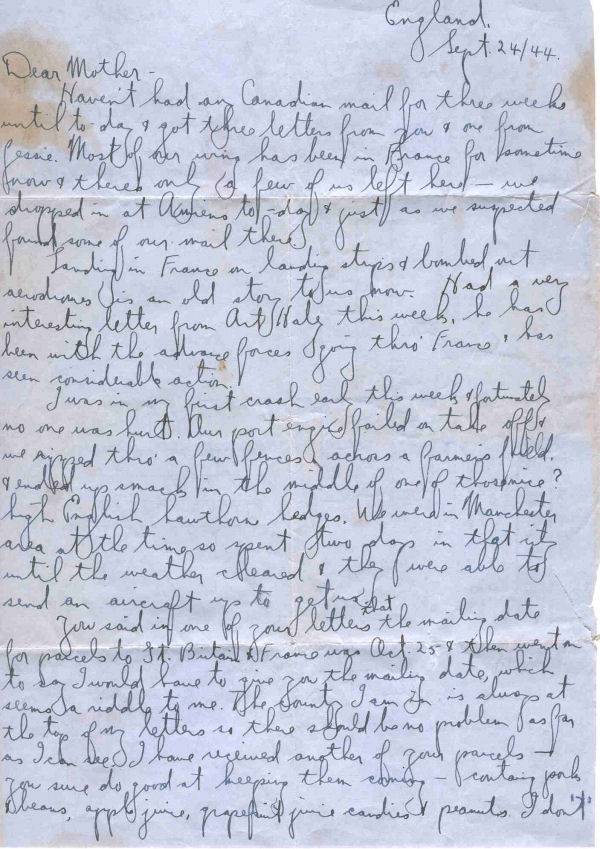 England.
Sept. 24/44.
Dear Mother -
Haven't had any Canadian mail for three weeks
until to-day & got three letters from you & one from
Jessie. Most of our wing has been in France for sometime
now & theres only a few of us left here - we
dropped in at Amiens to-day & just as we suspected
found some of our mail there.
Landing in France on landing strips & bombed out
aerodromes is an old story to us now. Had a very
interesting letter from Art Haly this week, he has
been with the advance forces going thro' France & has
seen considerable action.
I was in my first crash early this week & fortunately
no one was hurt. Our port engine failed on take off &
we ripped thro' a few fences, across a farmers field,
& ended up smack in the middle of one of those nice?
high English hawthorn hedges. We were in Manchester
area at the time so spent two days in that city
until the weather cleared & they were able to
send an aircraft up to get us.
You said in one of your letters that the mailing date
for parcels to Gt. Britain & France was Oct. 25 & then went on
to say I would have to give you the mailing date, which
seems a riddle to me. The country I am in is always at
the top of my letters so there should be no problem as far
as I can see. I have received another of your parcels -
you sure do good at keeping them coming - containg pork
& beans, apple juice, grapefruit juice candies & peanuts. I don't